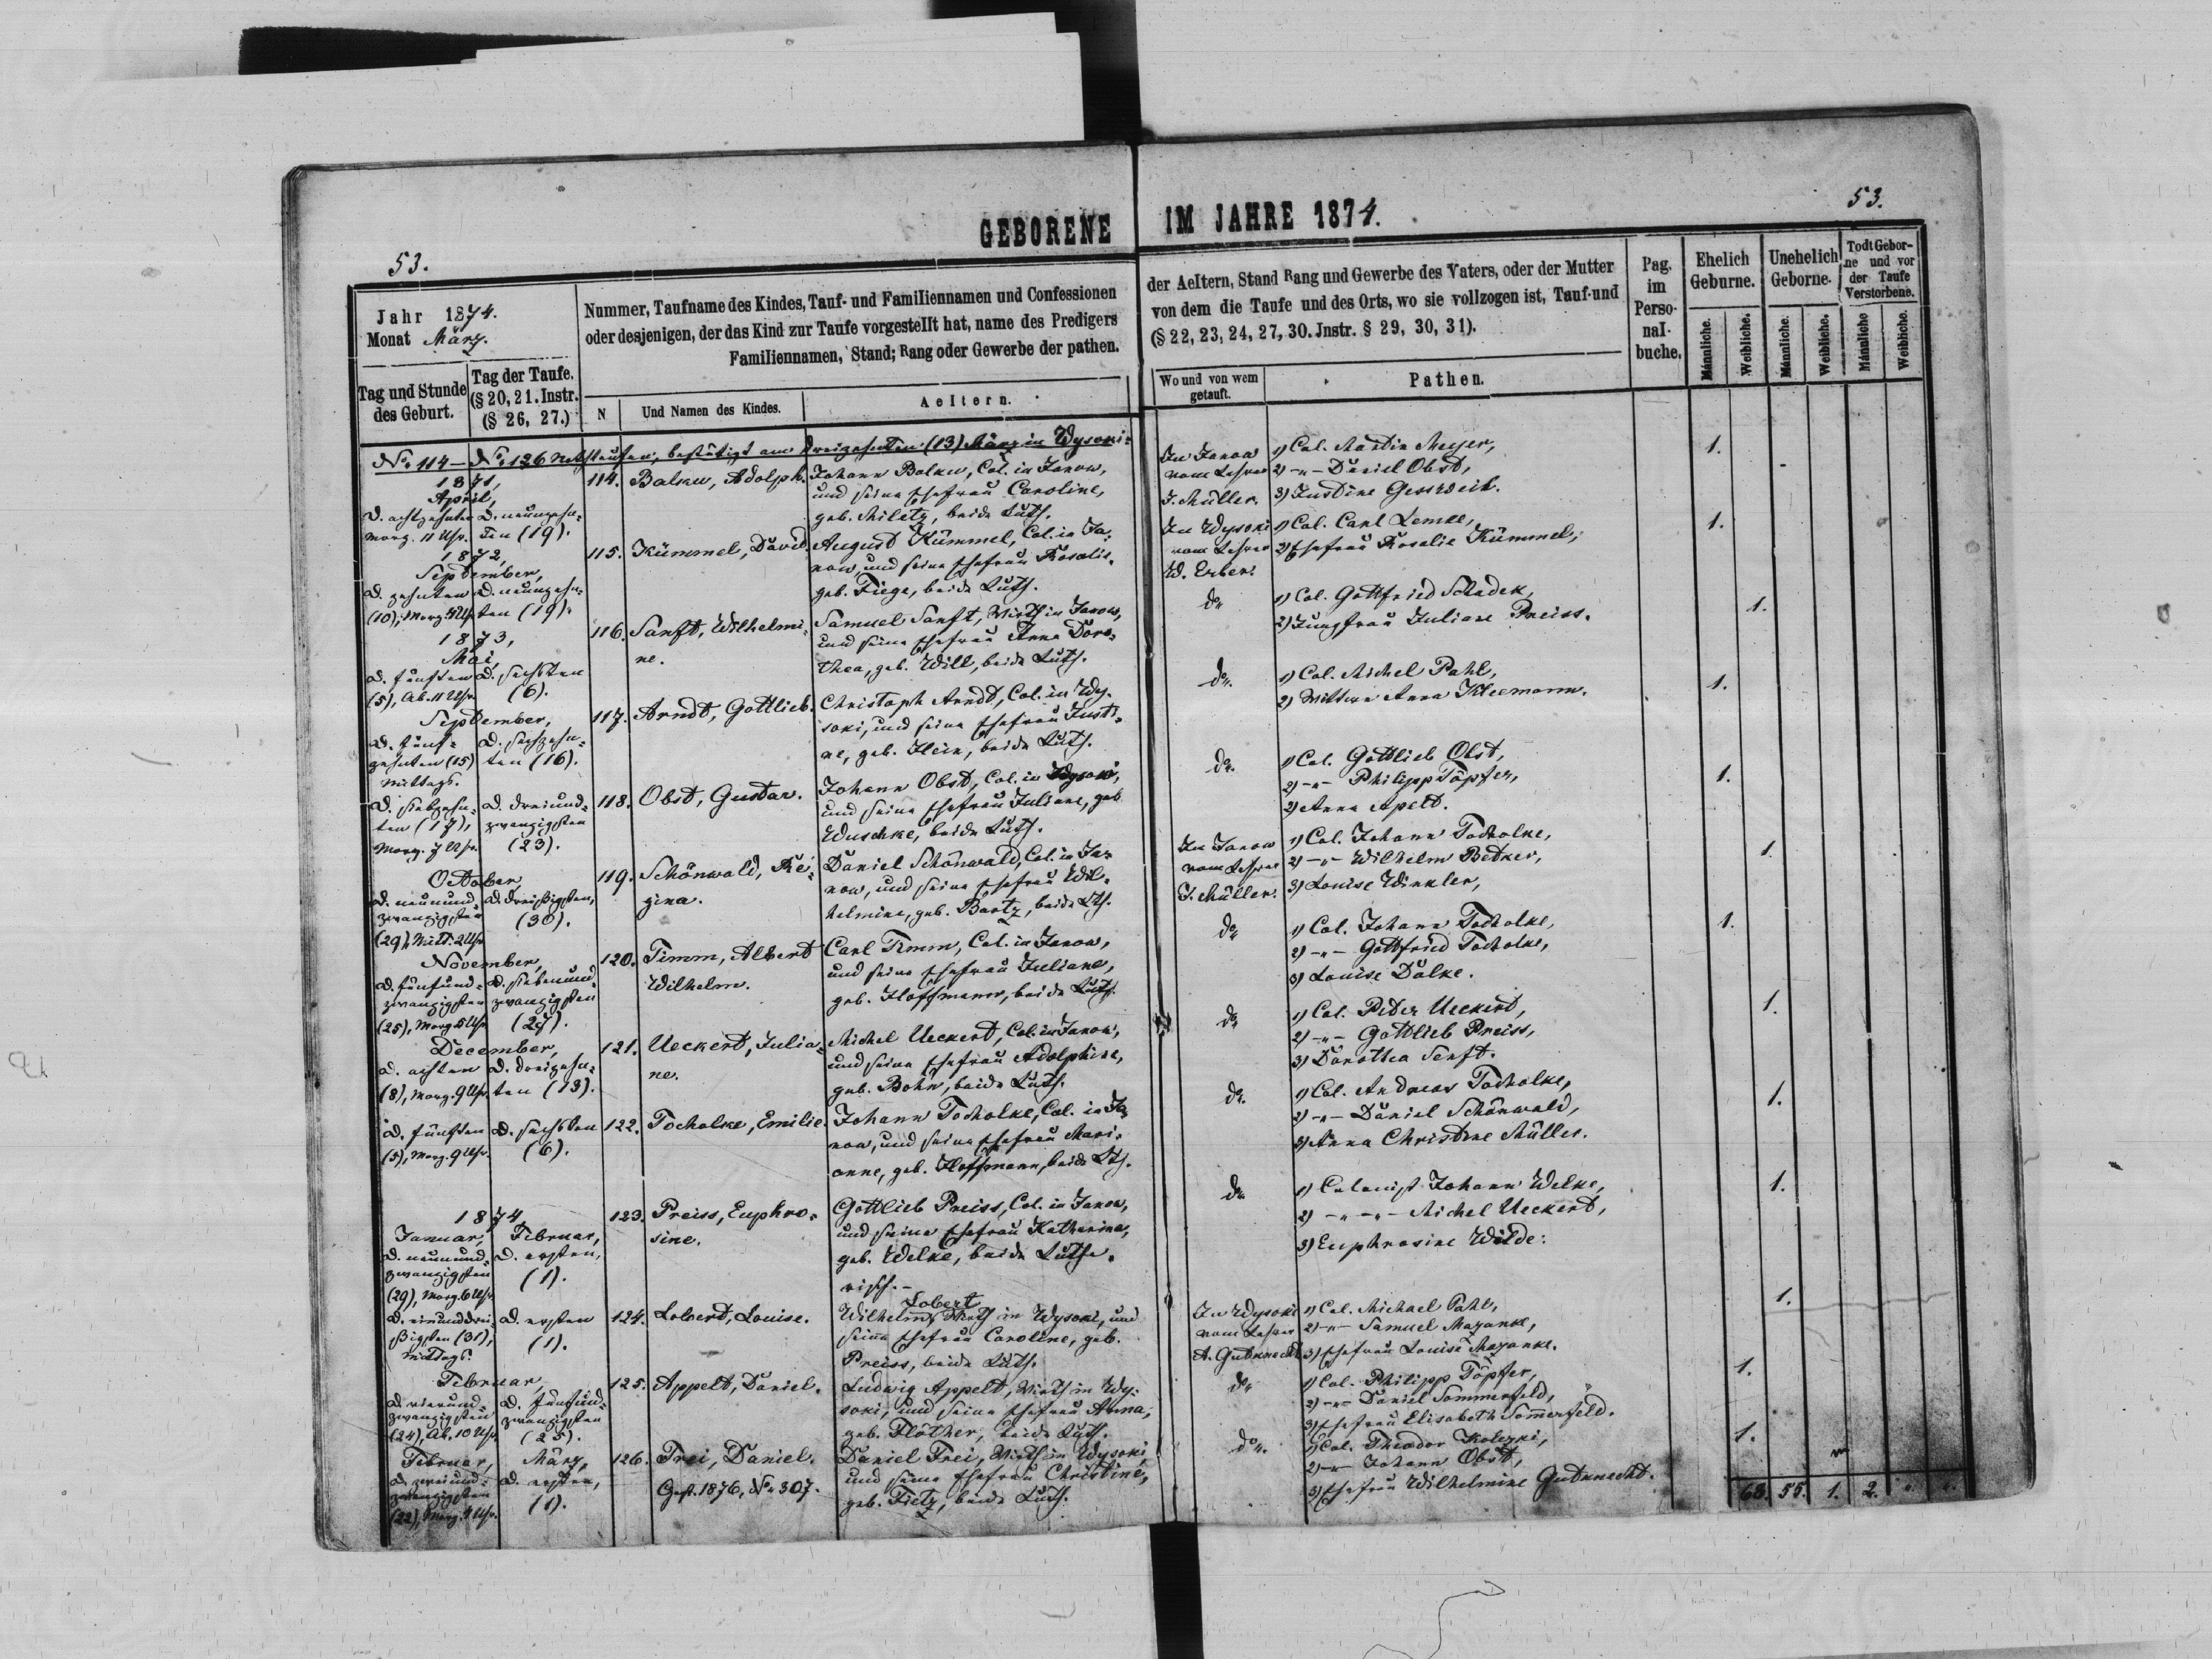 GEBORENE IM JAHRE 1874.
53.
53.
Jahr 1874.
Monat März.
Tag und Stunde des Geburt.
Tag der Taufe. (§ 20, 21. Instr. (§ 26, 27.)
Nummer, Taufname des Kindes, Tauf- und Familiennamen und Confessionen
oder desjenigen, der das Kind zur Taufe vorgestellt hat, name des Predigers
Familiennamen, Stand; Rang oder Gewerbe der pathen.
N
Und Namen des Kindes.
Aeltern.
der Aeltern, Stand Rang und Gewerbe des Vaters, oder der Mutter
von dem die Taufe und des Orts, wo sie vollzogen ist, Tauf-und
(§ 22, 23, 24, 27, 30. Jnstr. § 29, 30, 31).
Wo und von wem getauft.
Pathen.
Pag. im Perso-nal-buche.
Ehelich Geburne.
Unehelich Geborne.
Todt Gebor-ne und vor der Taufe Verstorbene.
Männliche.
Weibliche.
Männliche.
Weibliche.
Männliche
Weibliche.
No. 114 – No. 126 Nothtaufen, bestätigt am dreizehnten (13) März in Wysoki.
1871,
April,
d. achtzehnten
Morg. 11 Uhr.
d. neunzehn-
ten (19).
114. Balku, Adolph.
Johann Balku, Col. in Janow,
und seine Ehefrau Caroline,
geb. Miletz, beide Luth.
In Janow
vom Lehrer
J. Müller.
1) Col. Martin Meyer,
2) -„- Daniel Obst,
3) Justine
1.
1872,
September,
d. zehnten
(10), Morg.
d. neunzehn-
ten (19).
115. Kümmel, David.
August Kümmel, Col. in Ja-
now, und seine Ehefrau Rosalie,
geb. Fiege, beide Luth.
In Wysoki
vom Lehrer
W. Erber.
1) Col. Carl Lemke,
2) Ehefrau Rosalie Kümmel,
1.
1873,
Mai,
d. fünften
(5), Ab. 11 Uhr.
d. sechsten
(6).
116. Sanft, Wilhelmi-
ne.
Samuel Sanft, Wirth in Janow,
und seine Ehefrau Anna Doro-
thea, geb. Will, beide Luth.
do
1) Col. Gottfried Schadek,
2) Jungfrau Juliane Preiss.
1.
September,
d. fünf-
zehnten (15)
Mittags.
d. sechzehn-
ten (16).
117. Arndt, Gottlieb.
Christoph Arndt, Col. in Wy-
soki, und seine Ehefrau Justi-
ne, geb. Klein, beide Luth.
do.
1) Col. Michel Pahl,
2) Wittwe Anna Kleemann.
1.
d. siebzehn-
ten (17),
Morg. 7 Uhr.
d. dreiund-
zwanzigsten
(23).
118. Obst, Gustav.
Johann Obst, Col. in Wysoki,
und seine Ehefrau Juliane, geb.
Wuschke, beide Luth.
do.
1) Col. Gottlieb Obst,
2) -„- Philipp Töpfer,
2) Anna Apelt.
1.
October
d. neunund-
zwanzigsten
(29), Mitt. 2 Uhr
d. dreißigsten,
(30).
119. Schönwald, Re-
gina.
Daniel Schönwald, Col. in Ja-
now, und seine Ehefrau Wil-
helmine, geb. Bartz, beide Lth.
In Janow
vom Lehrer
J. Müller.
1) Col. Johann Tocholke,
2) -„- Wilhelm Betker,
3) Louise Winkler,
1.
November,
d. fünfund-
zwanzigsten
(25), Morg. 5 Uhr
d. siebenund-
zwanzigsten
(27).
120. Timm, Albert
Wilhelm.
Carl Timm, Col. in Janow,
und seine Ehefrau Juliane,
geb. Hoffmann, beide Luth.
do
1) Col. Johann Tocholke,
2) -„- Gottfried Tocholke,
3) Louise Dalke.
1.
December,
d. achten
(8), Morg. 9 Uhr.
d. dreizehn-
ten (13).
121. Ueckert, Julia-
ne.
Michel Ueckert, Col. in Janow,
und seine Ehefrau Adolphine,
geb. Bohn, beide Luth.
do
1) Col. Peter Ueckert,
2) -„- Gottlieb Preiss,
3) Dorothea Senft.
1.
d. fünften
(5), Morg. 9 Uhr.
d. sechsten
(6).
122. Tocholke, Emilie.
Johann Tocholke, Col. in Ja-
now, und seine Ehefrau Mari-
anne, geb. Hoffmann, beide Lth.
do.
1) Col. Andreas Tocholke,
2) -„- Daniel Schönwald,
3) Anna Christine Müller.
1.
1874
Januar,
d. neunund-
zwanzigsten
(29), Morg. 6 Uhr.
Februar,
d. ersten,
(1).
123. Preiss, Euphro-
sine.
Gottlieb Preiss, Col. in Janow,
und seine Ehefrau Katharina,
geb. Welke, beide Luthe-
risch. –
do
1) Colonist Johann Welke,
2) -„-„- Michel Ueckert,
3) Euphrosine Wilde.
1.
d. einunddrei-
ßigsten (31),
Mittags.
d. ersten
(1).
124. Lobert, Louise.
Lobert
Wilhelm, Wirth in Wysoki, und
seine Ehefrau Caroline, geb.
Preiss, beide Luth.
In Wysoki
vom Lehrer
A. Gutknecht
1) Col. Michael Pahl,
2) -„- Samuel Mazanke,
3) Ehefrau Louise Mazanke.
1.
Februar
d. vierund-
zwanzigsten
(24), Ab. 10 Uhr,
d. fünfund-
zwanzigsten
(25).
125. Appelt, Daniel.
Ludwig Appelt, Wirth in Wy-
soki, und seine Ehefrau Anna,
geb. Flöther, beide Luth.
do
1) Col. Philipp Töpfer,
2) -„- Daniel Sommerfeld,
3) Ehefrau Elisabeth Sommerfeld.
1.
Februar,
d. zweiund-
zwanzigsten
(22), Morg. 4 Uhr.
März,
d. ersten,
(1).
126. Frei, Daniel.
Gest. 1876, No. 307.
Daniel Frei, Wirth in Wysoki,
und seine Ehefrau Christine,
geb. Fietz, beide Luth.
do.
1) Col. Theodor
2) -„- Johann Obst,
3) Ehefrau Wilhelmine Gutknecht.
1.
68. 55. 1. 2.